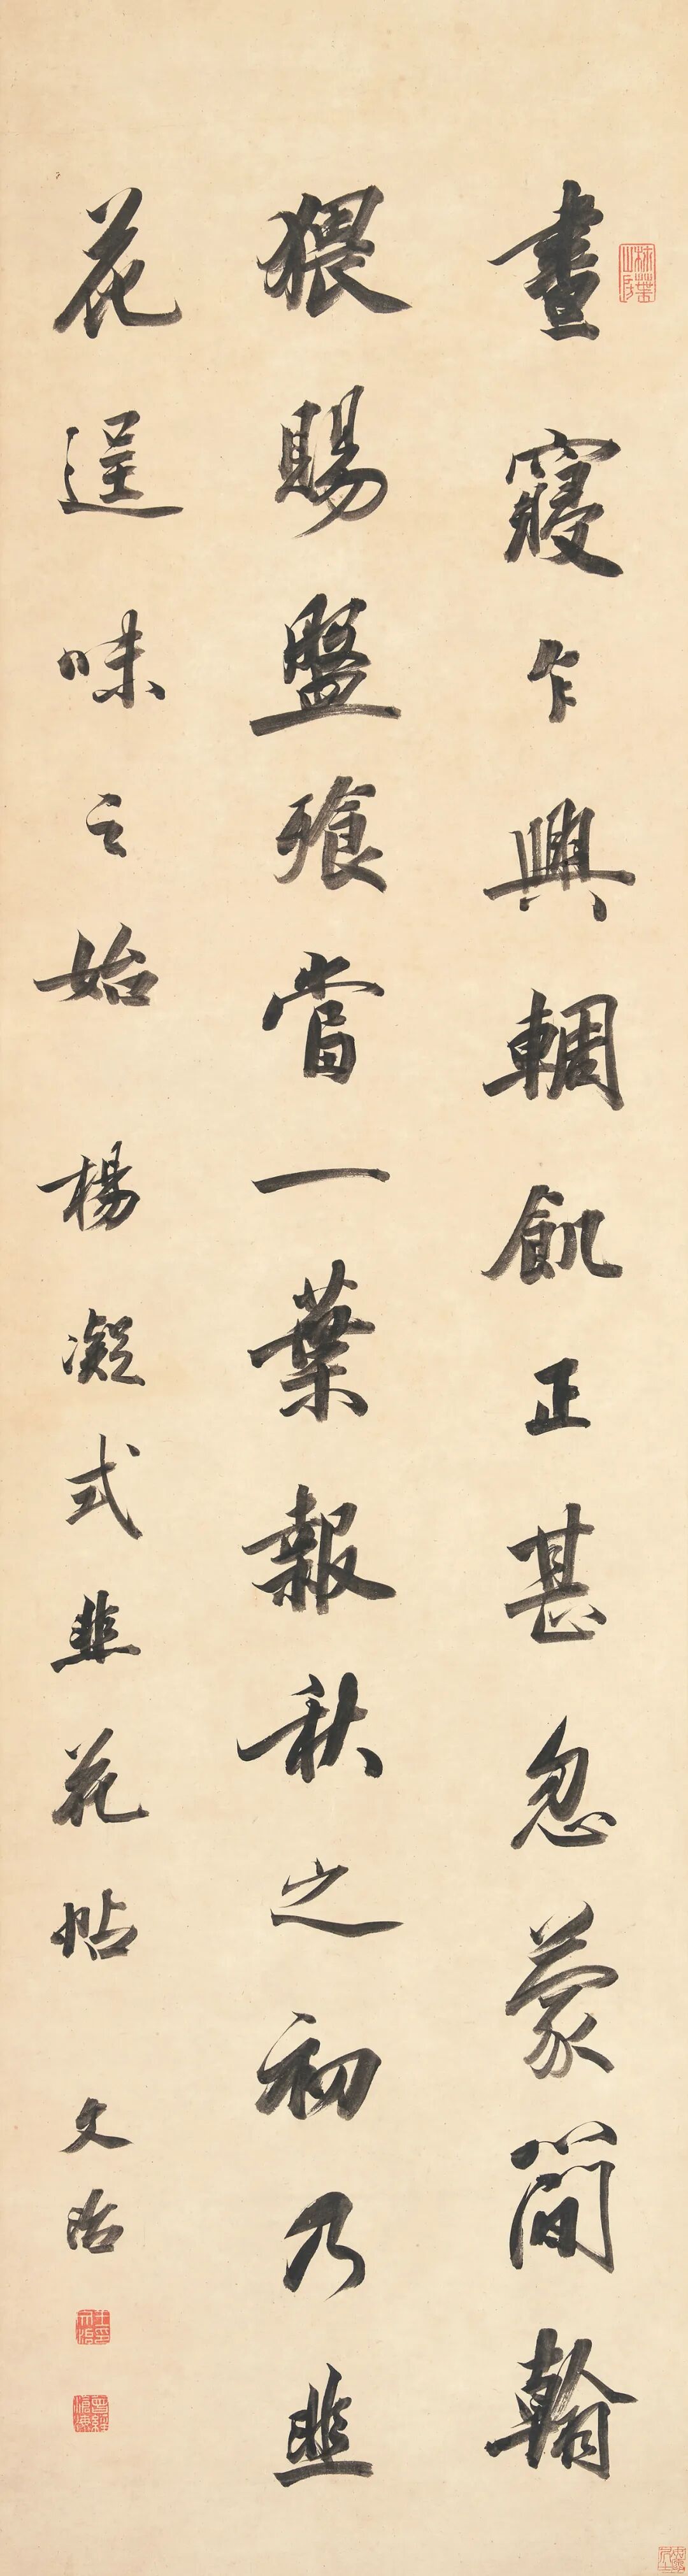 晝寢乍興輖飢正甚忽蒙簡翰
猥賜盤飧當一葉報秋之初乃韭
花逞味之始 楊凝式韭花帖 文治
王文治印
曾經滄海